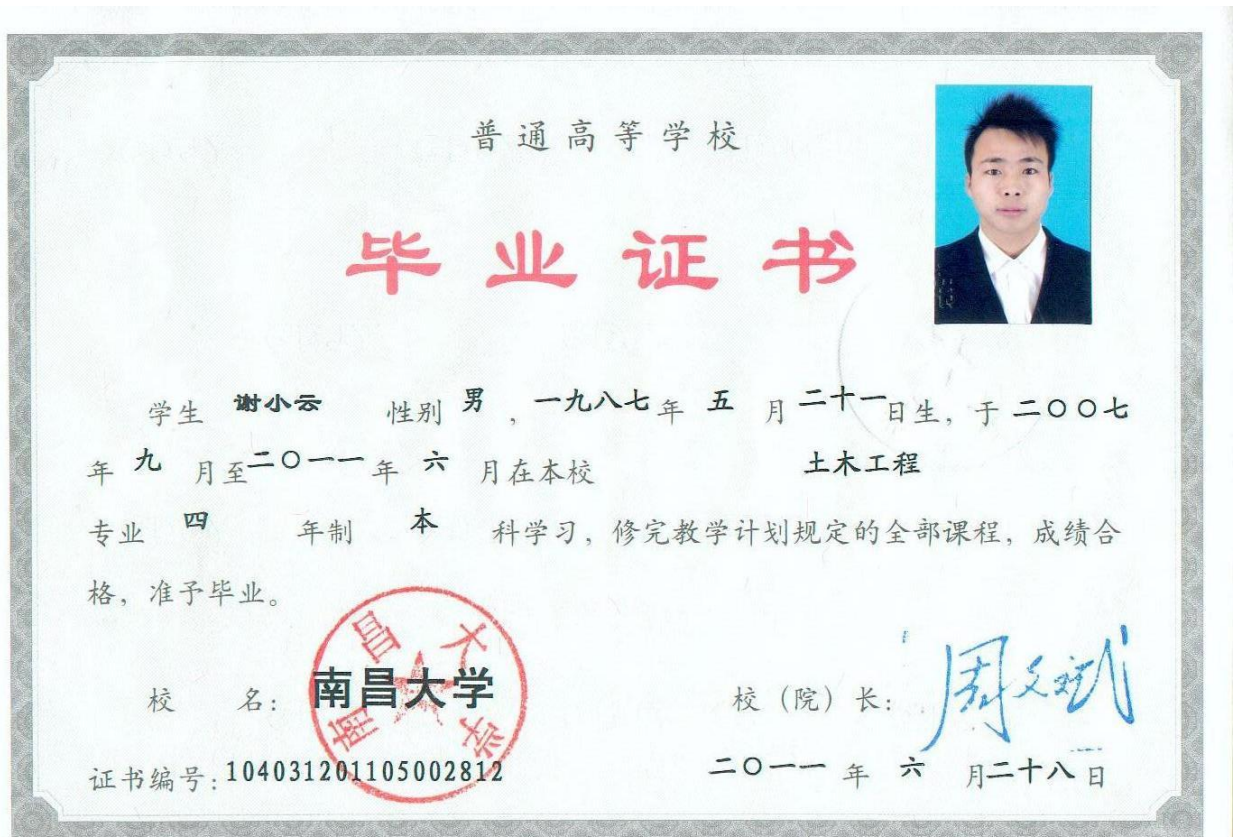 普通高等学校
毕业证书
学生 谢小云 性别 男 , 一九八七 年 五 月 二十一 日生, 于 二〇〇七
年 九 月至 二〇一一 年 六 月在本校 土木工程
专业 四 年制 本 科学习, 修完教学计划规定的全部课程, 成绩合
格, 准予毕业。
南昌大学
校 名: 南昌大学 校 (院) 长: 周文斌
证书编号: 104031201105002812 二〇一一 年 六 月 二十八 日